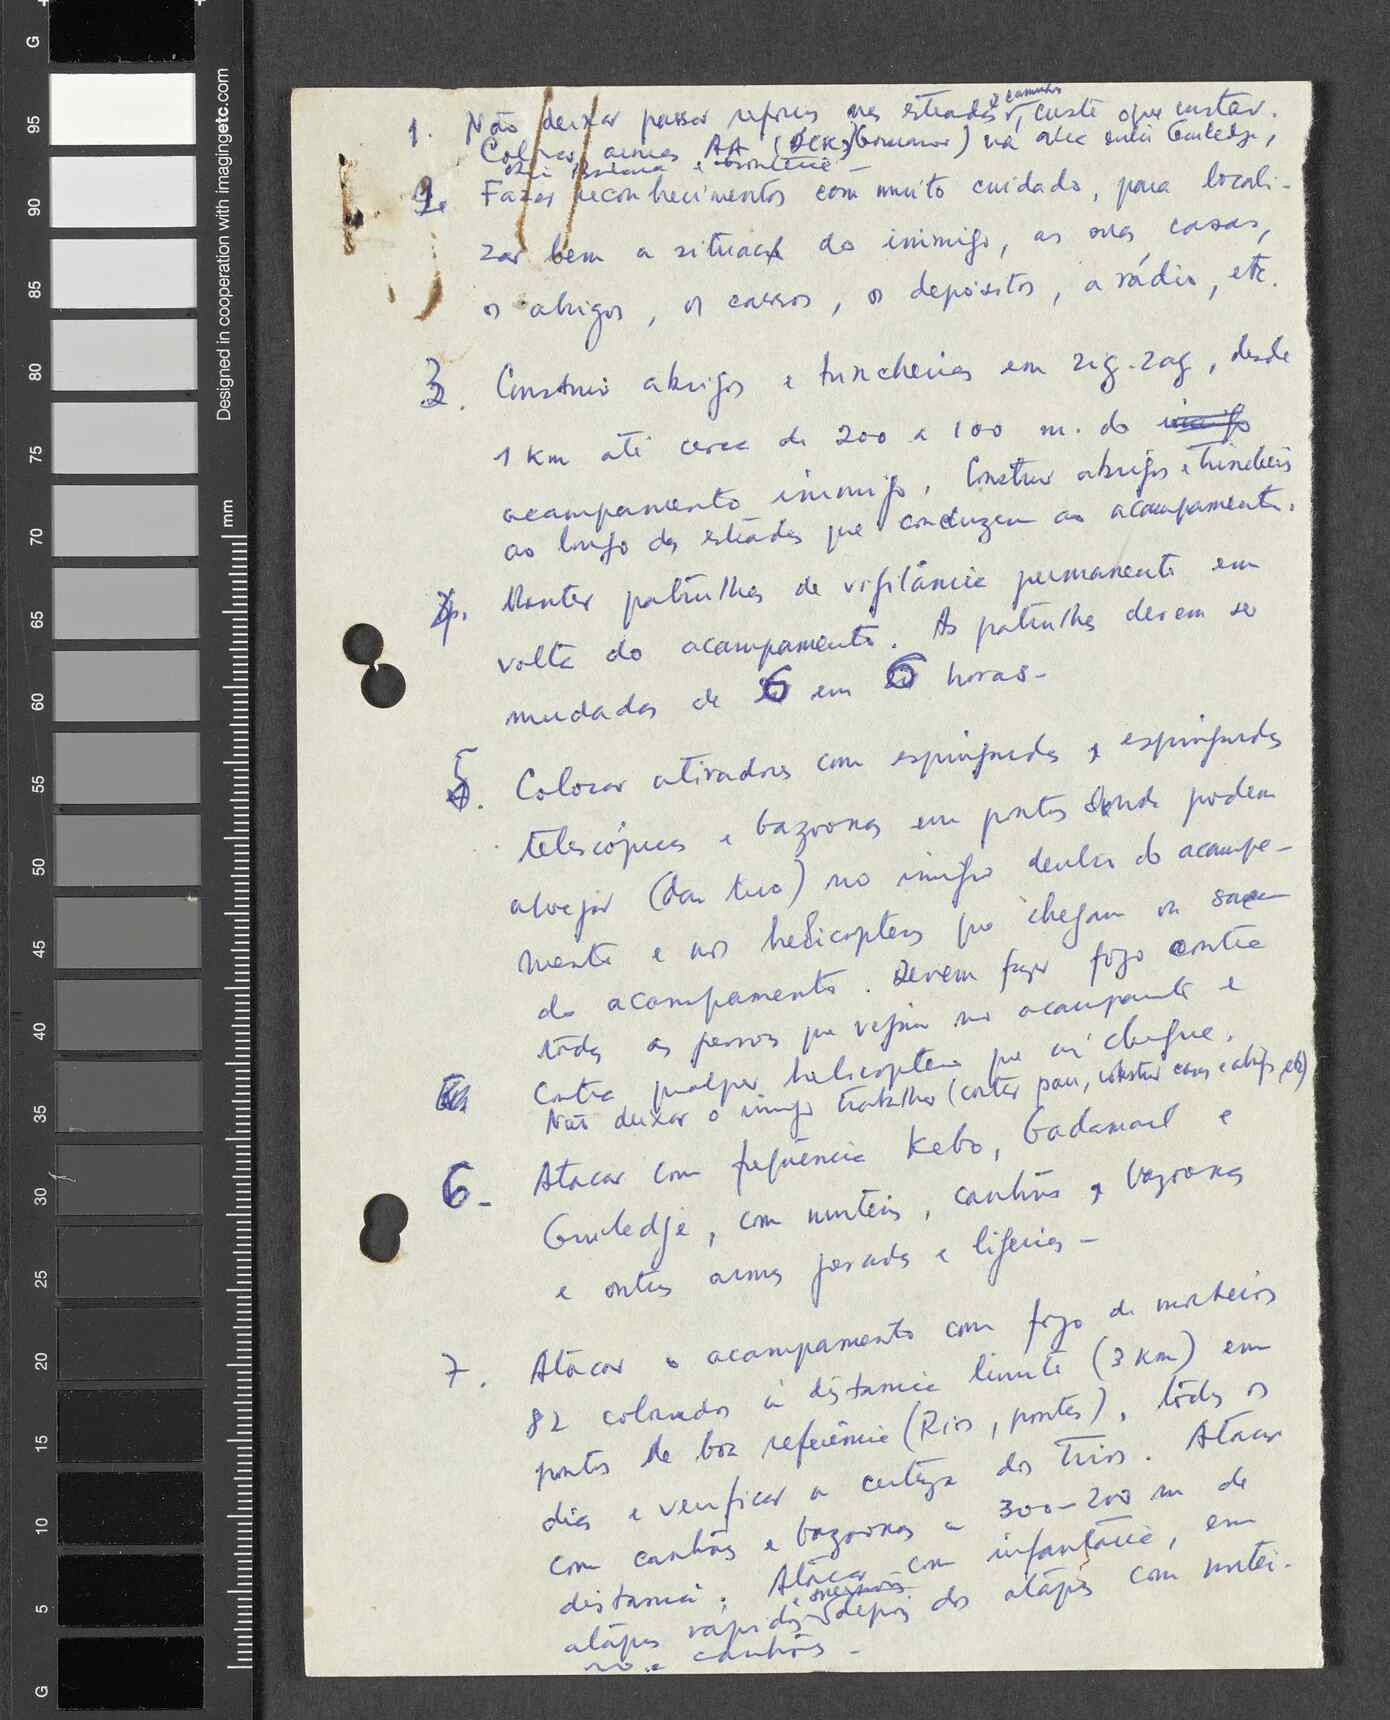 1. Não deixar passar reforços nas estradas e caminhos, custe o que custar.
Colocar armas AA (DCK) na área entre Guiledje,
e fronteira -
2. Fazer reconhecimentos com muito cuidado, para locali-
zar bem a situação do inimigo, as suas casas,
os abrigos, os carros, os depósitos, a rádio, etc.
3. Construir abrigos e trincheiras em zig-zag, desde
1 Km até cerca de 200 a 100 m. do
acampamento inimigo. Construir abrigos e trincheiras
ao longo das estradas que conduzem ao acampamento.
4. Manter patrulhas de vigilância permanente em
volta do acampamento. As patrulhas devem ser
mudadas de 6 em 6 horas -
5. Colocar atiradores com espingardas e espingardas
telescópicas e bazookas em pontos donde podem
alvejar (dar tiro) no inimigo dentro do acampa-
mento e nos helicopteros que chegam ou saem
do acampamento. Devem fazer fogo contra
todas as pessoas que vejam no acampamento e
contra qualquer helicoptero que aí chegue.
Não deixar o inimigo trabalhar (cortar pau, construir casas e abrigos, etc)
6. Atacar com frequência Kebo, Gadamael e
Guiledje, com morteiros, canhões e bazookas
e outras armas pesadas e ligeiras -
7. Atacar o acampamento com fogo de morteiros
82 colocados à distancia limite (3 Km) em
pontos de boa referência (Rios, pontes), todos os
dias e verificar a certeza dos tiros. Atacar
com canhões e bazookas a 300-200 m de
distancia. Atacar com infantaria, em
ataques rápidos depois dos ataques com mortei-
ros e canhões -